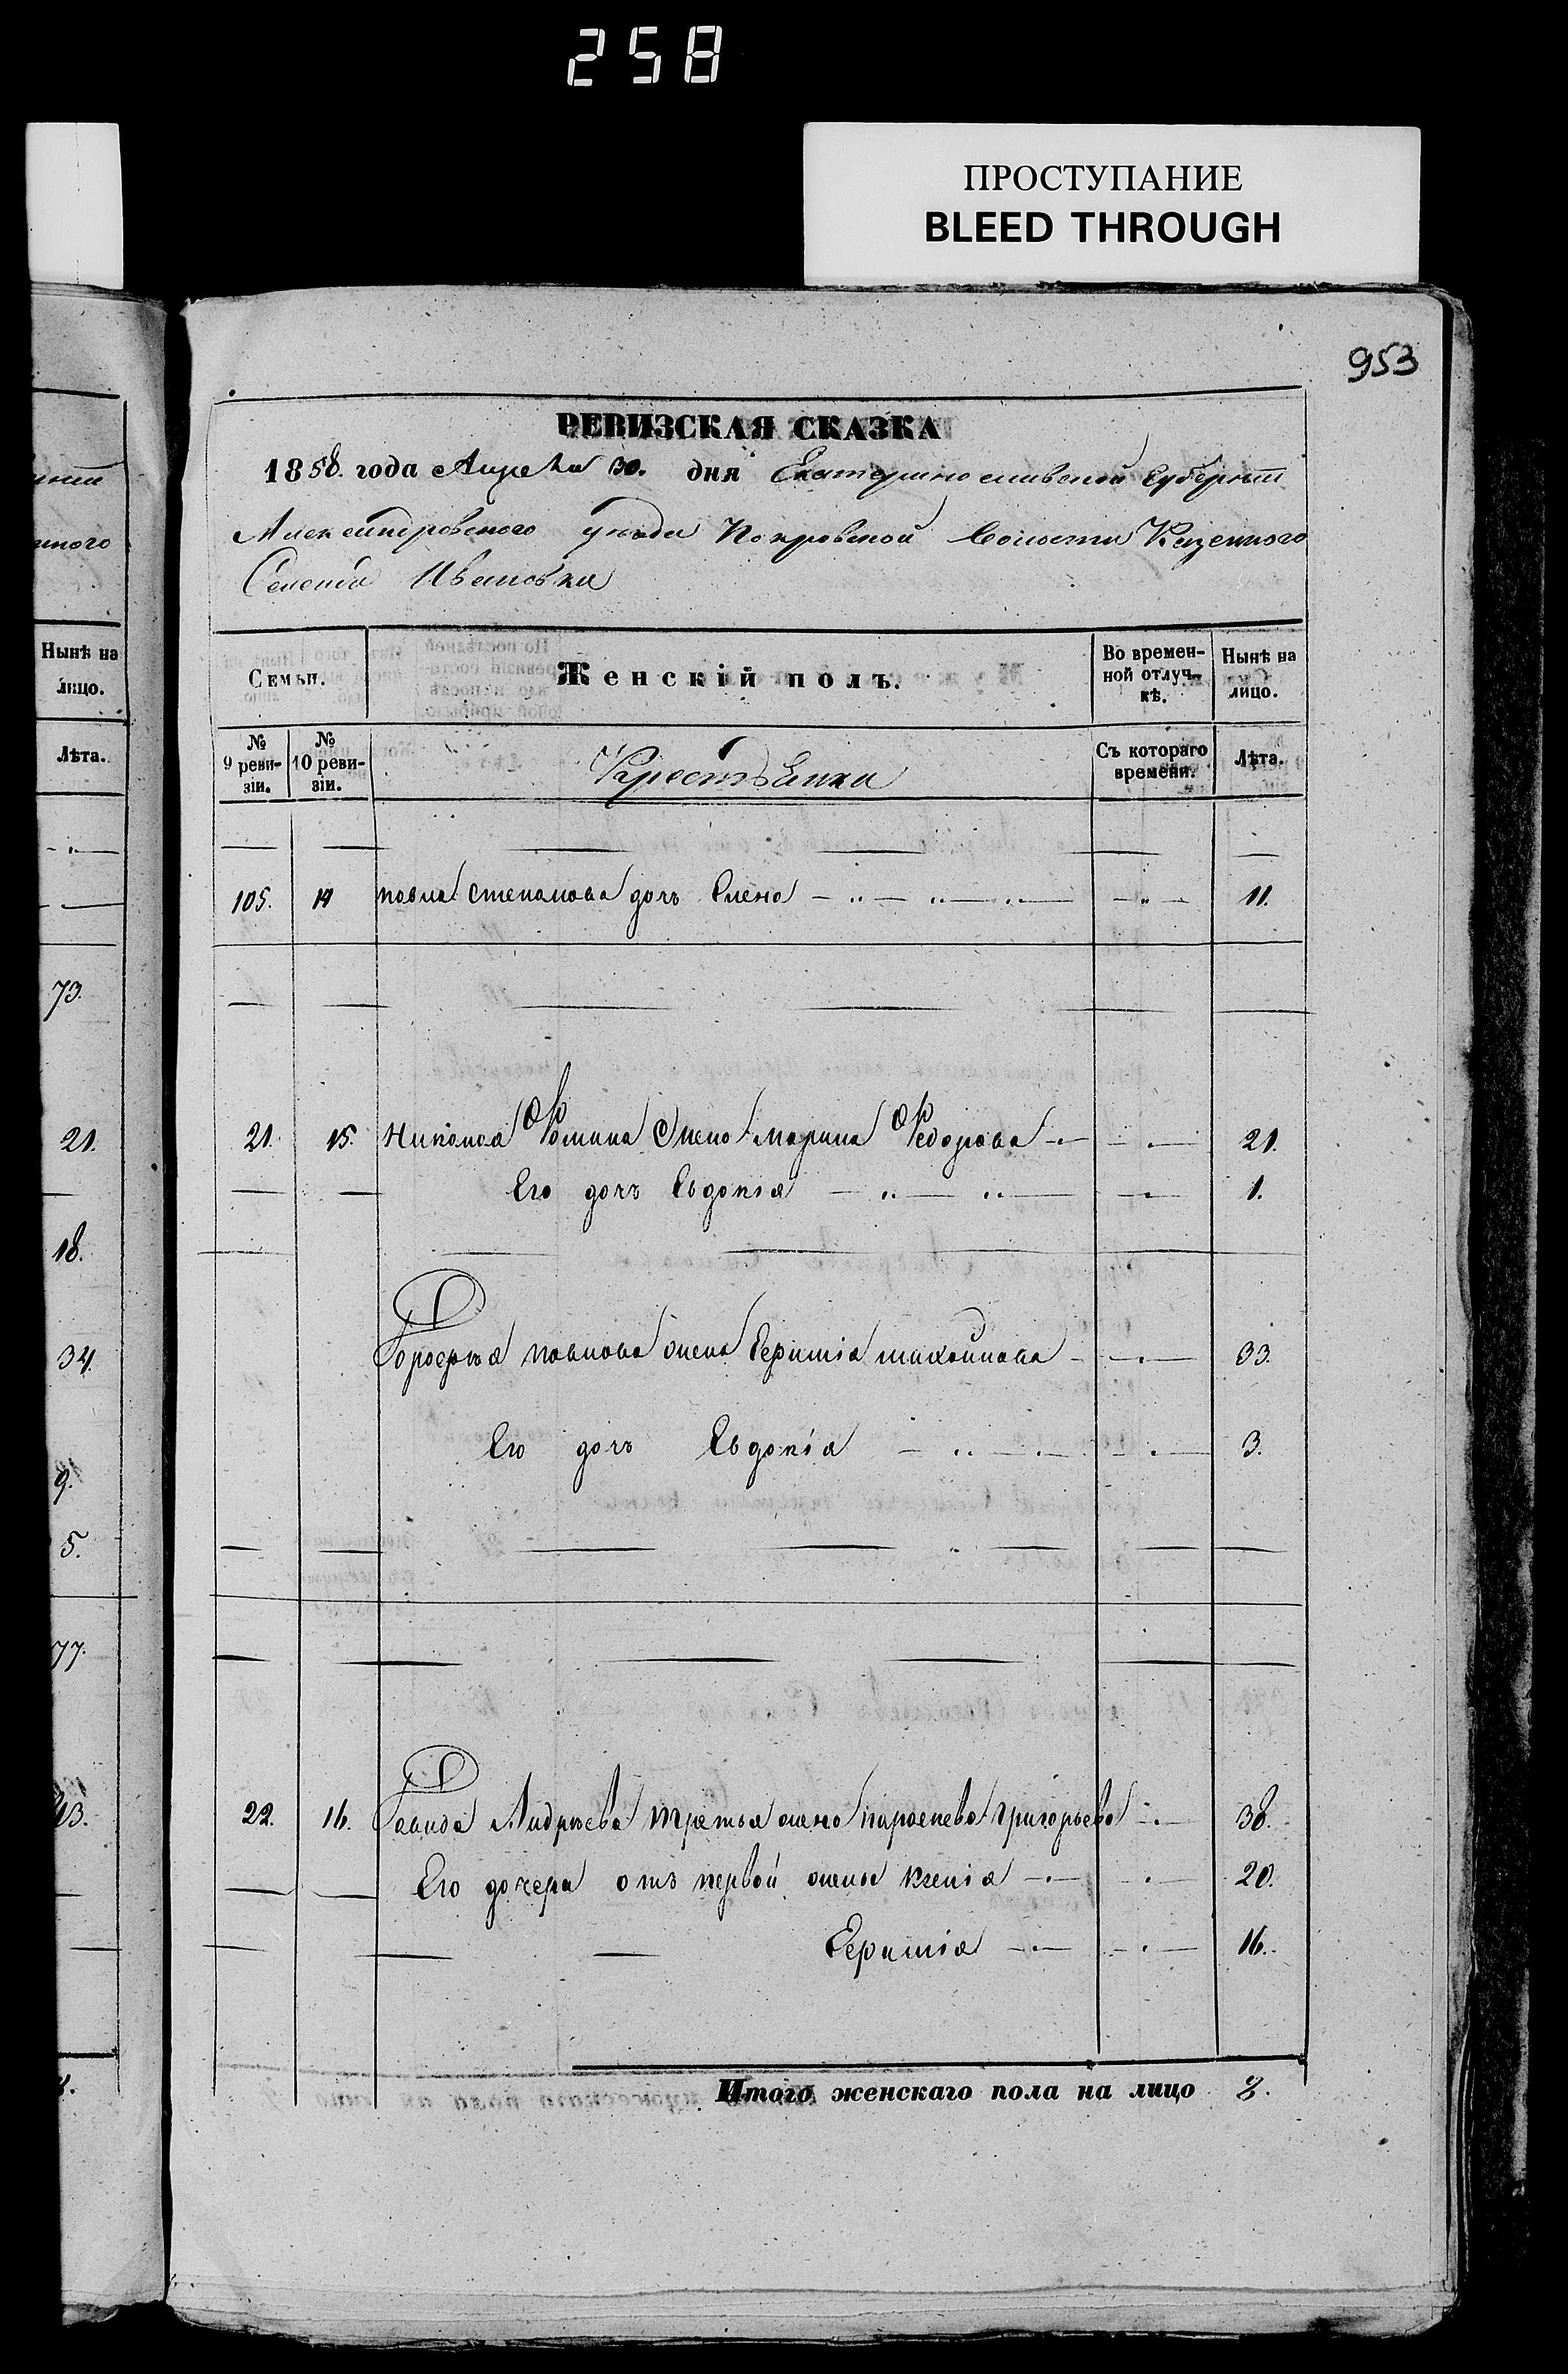 258
ПРОСТУПАНИЕ
BLEED THROUGH
953
РЕВИЗСКАЯ СКАЗКА
1858. года Апреля 30. дня Екатеринославской Губернiи
Александровского уезда Покровской Волости Казенного
Селенiя Ивановки
Семьи.
Женскiй полъ.
Во временной отлучкѣ.
Нынѣ на лицо.
№ 9 ревизiи.
№ 10 ревизiи.
Крестьянки
Съ котораго времени.
Лѣта.
105. 14 павла Степанова дочь Елена 11.
21. 15. Николая Фомина Жена марина Федорова 21.
Его дочь Евдокiя 1.
павлова жена михайлова 33.
Его дочь Евдокiя 3.
22. 16. Давида Андрѣева третья жена Григорьева 38.
Его дочери отъ первой жены Ксенiя 20.
16.
Итого женскаго пола на лицо 8.
Нынѣ на лицо.
Лѣта.
73.
21.
18.
34.
9.
5.
77.